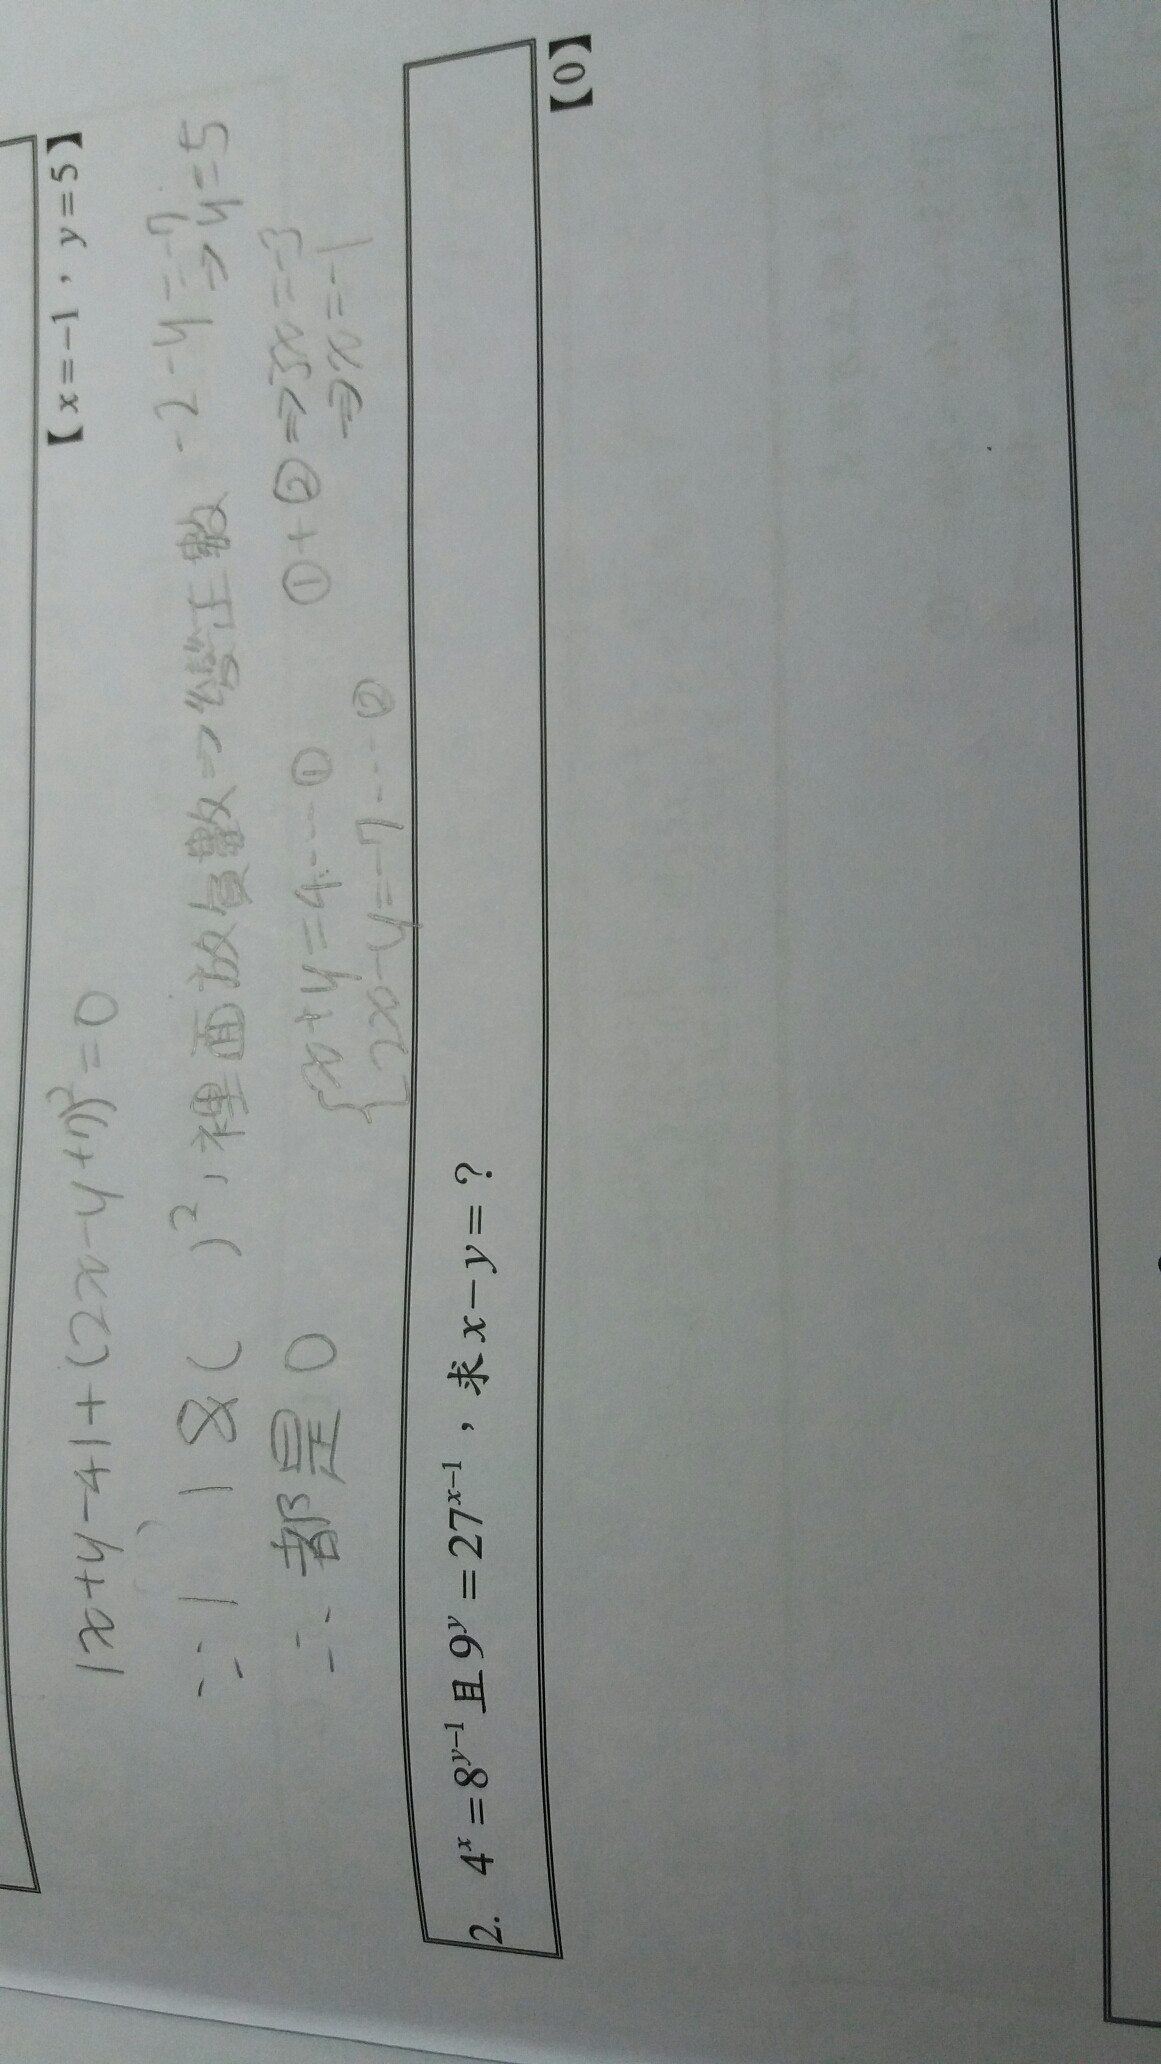 【x=-1，y=5】
|x+y-4|+(2x-y+7)²=0
∵| | &( )²，裡面放負數⇒變正數
-2-y=-7
⇒y=5
∴都是0
{x+y=4…①
2x-y=-7…②
①+②⇒3x=-3
⇒x=-1
2. 4ˣ=8ʸ⁻¹且9ʸ=27ˣ⁻¹，求x-y=？
【0】